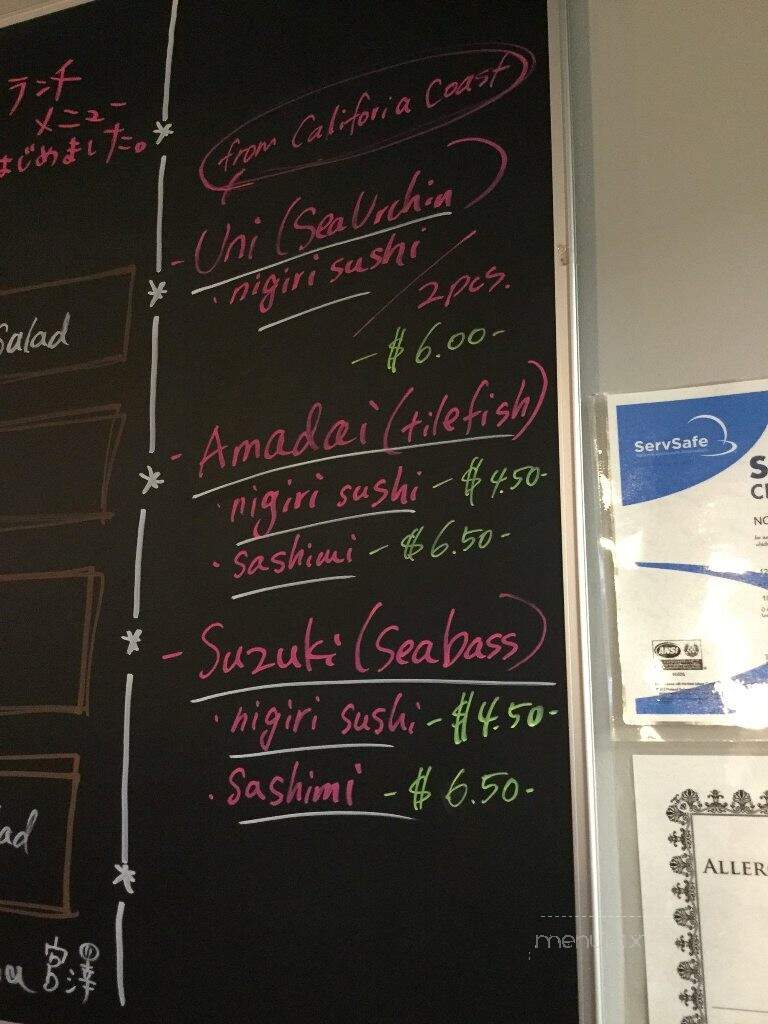 ランチ
メニュー
はじめました。
Salad
ad
宮澤
from Califoria Coast
- Uni (Sea Urchin)
・nigiri sushi
2pcs.
- $6.00-
- Amadai (tilefish)
・nigiri sushi - $4.50-
・sashimi - $6.50-
- Suzuki (Seabass)
・nigiri sushi - $4.50-
・Sashimi - $6.50-
ServSafe
S
NO
ANSI
ALLER
menu